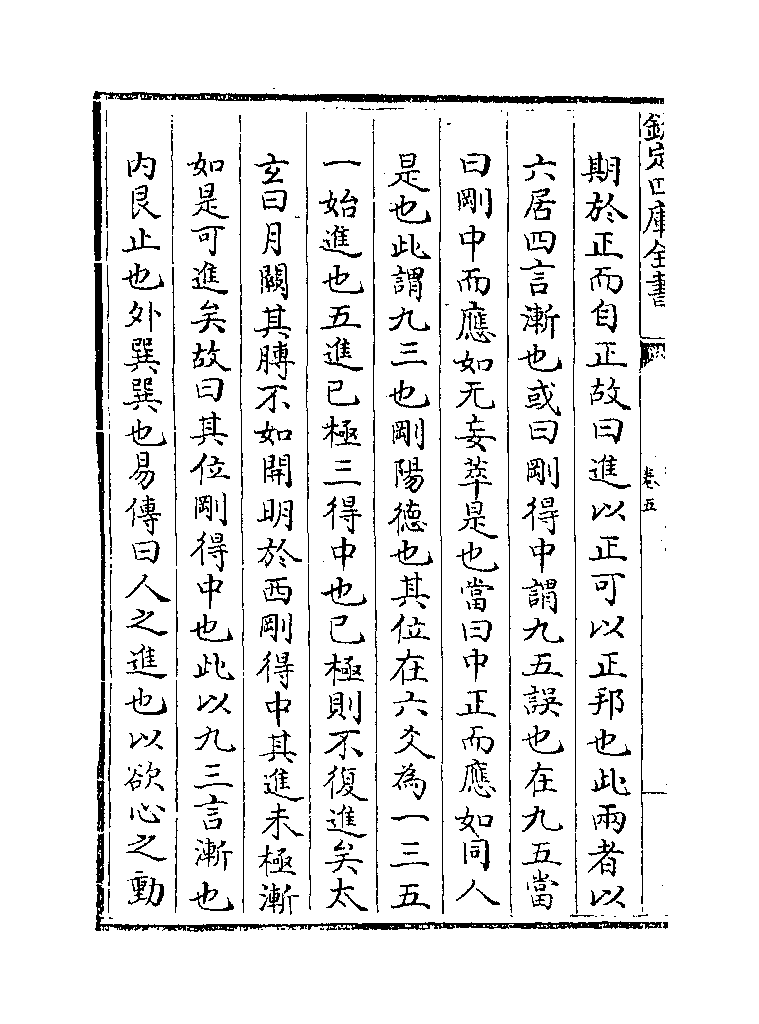 欽定四庫全書
卷五
期於正而自正故曰進以正可以正邦也此兩者以
六居四言漸也或曰剛得中謂九五誤也在九五當
曰剛中而應如无妄萃是也當曰中正而應如同人
是也此謂九三也剛陽德也其位在六爻為一三五
一始進也五進已極三得中也已極則不復進矣太
玄曰月闕其膞不如開明於西剛得中其進未極漸
如是可進矣故曰其位剛得中也此以九三言漸也
内艮止也外巽巽也易傳曰人之進也以欲心之動